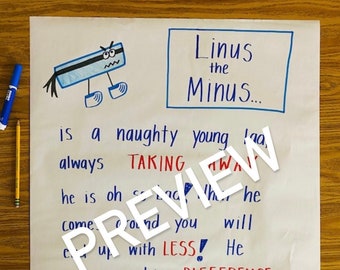 Linus
the
Minus...
is a naughty young lad,
always TAKING AWAY
he is oh so bad! When he
come around you will
end up with LESS! He
DIFFERENCE
PREVIEW